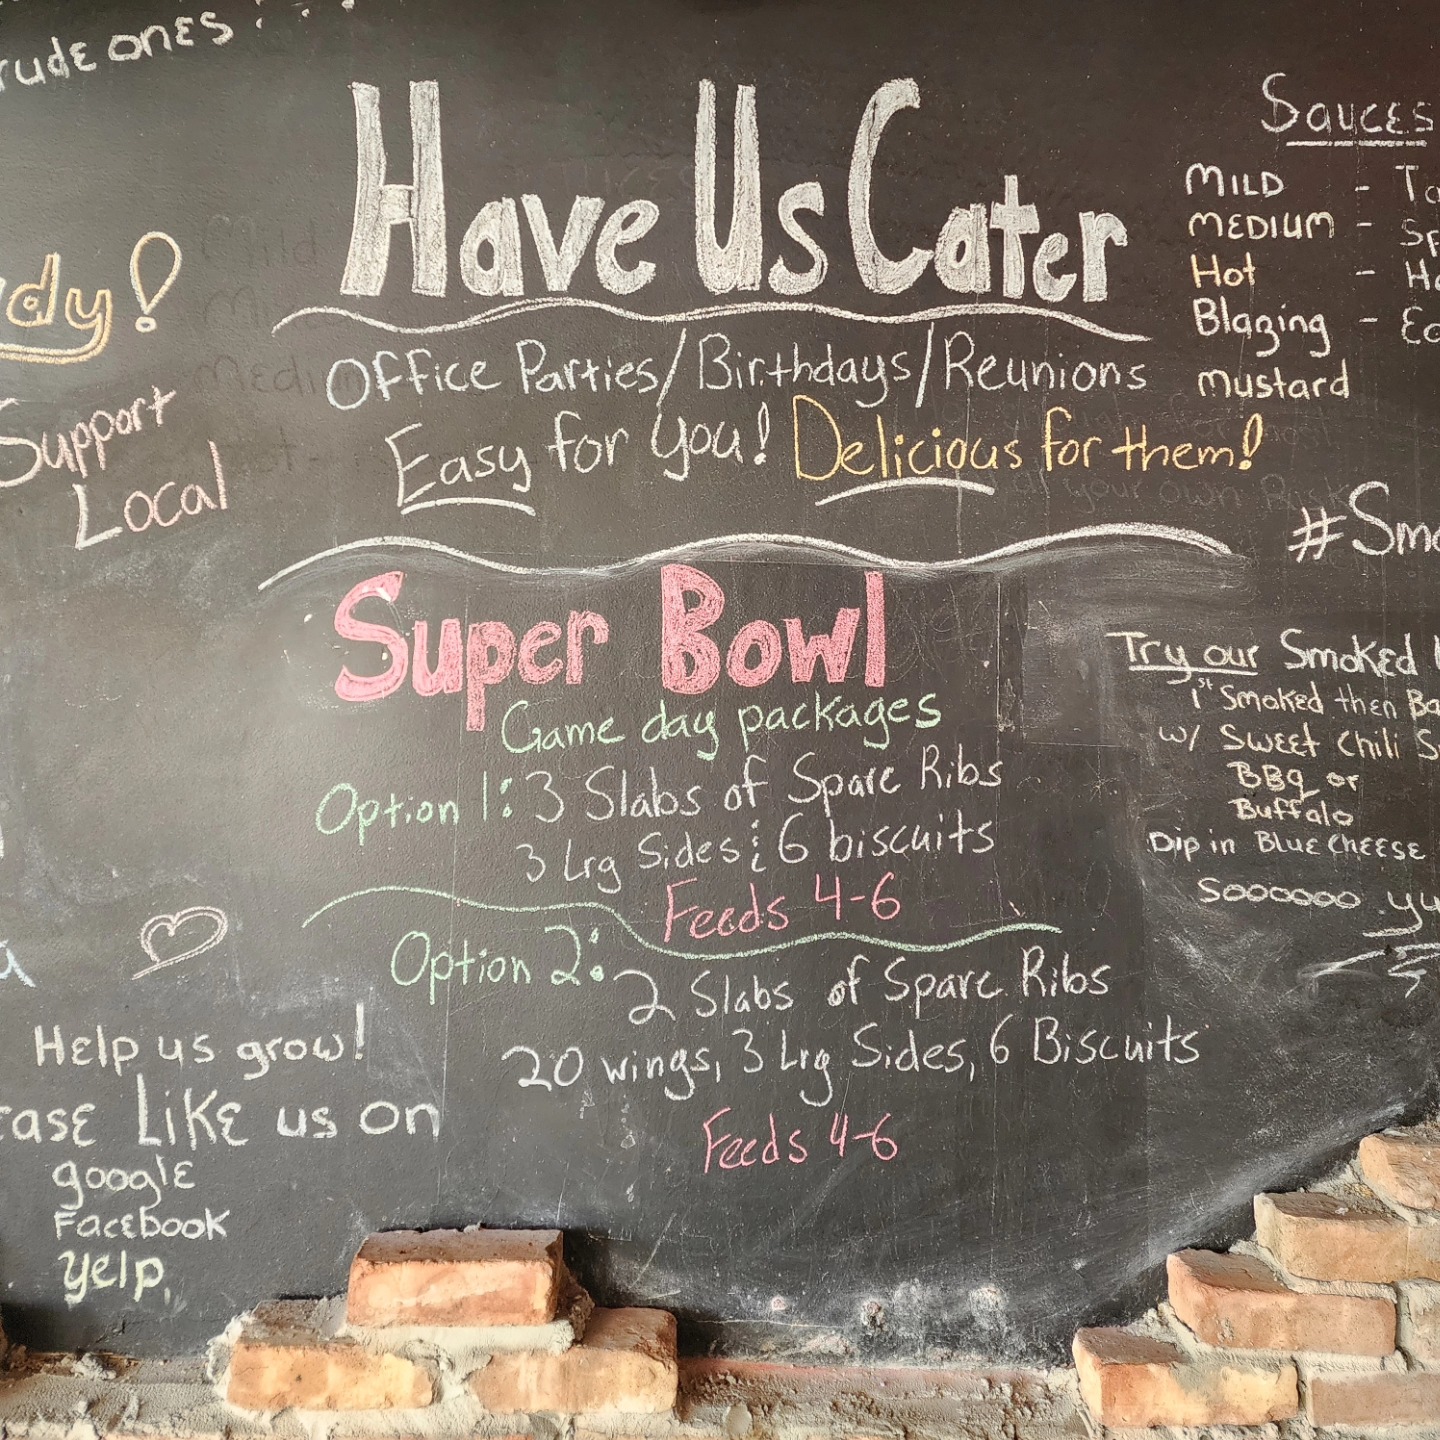 ones
Have Us Cater
Office Parties/Birthdays/Reunions
Easy for you! Delicious for them!
Super Bowl
Game day packages
Option 1: 3 Slabs of Spare Ribs
3 Lrg Sides; 6 biscuits
Feeds 4-6
Option 2: 2 Slabs of Spare Ribs
20 wings, 3 Lrg Sides, 6 Biscuits
Feeds 4-6
Support
Local
Help us grow!
Like us on
google
Facebook
yelp,
Sauces
MILD -
MEDIUM -
Hot -
Blazing -
Mustard
Try our Smoked
1st Smoked then
w/ Sweet Chili
BBq or
Buffalo
Dip in Blue Cheese
Soooooo